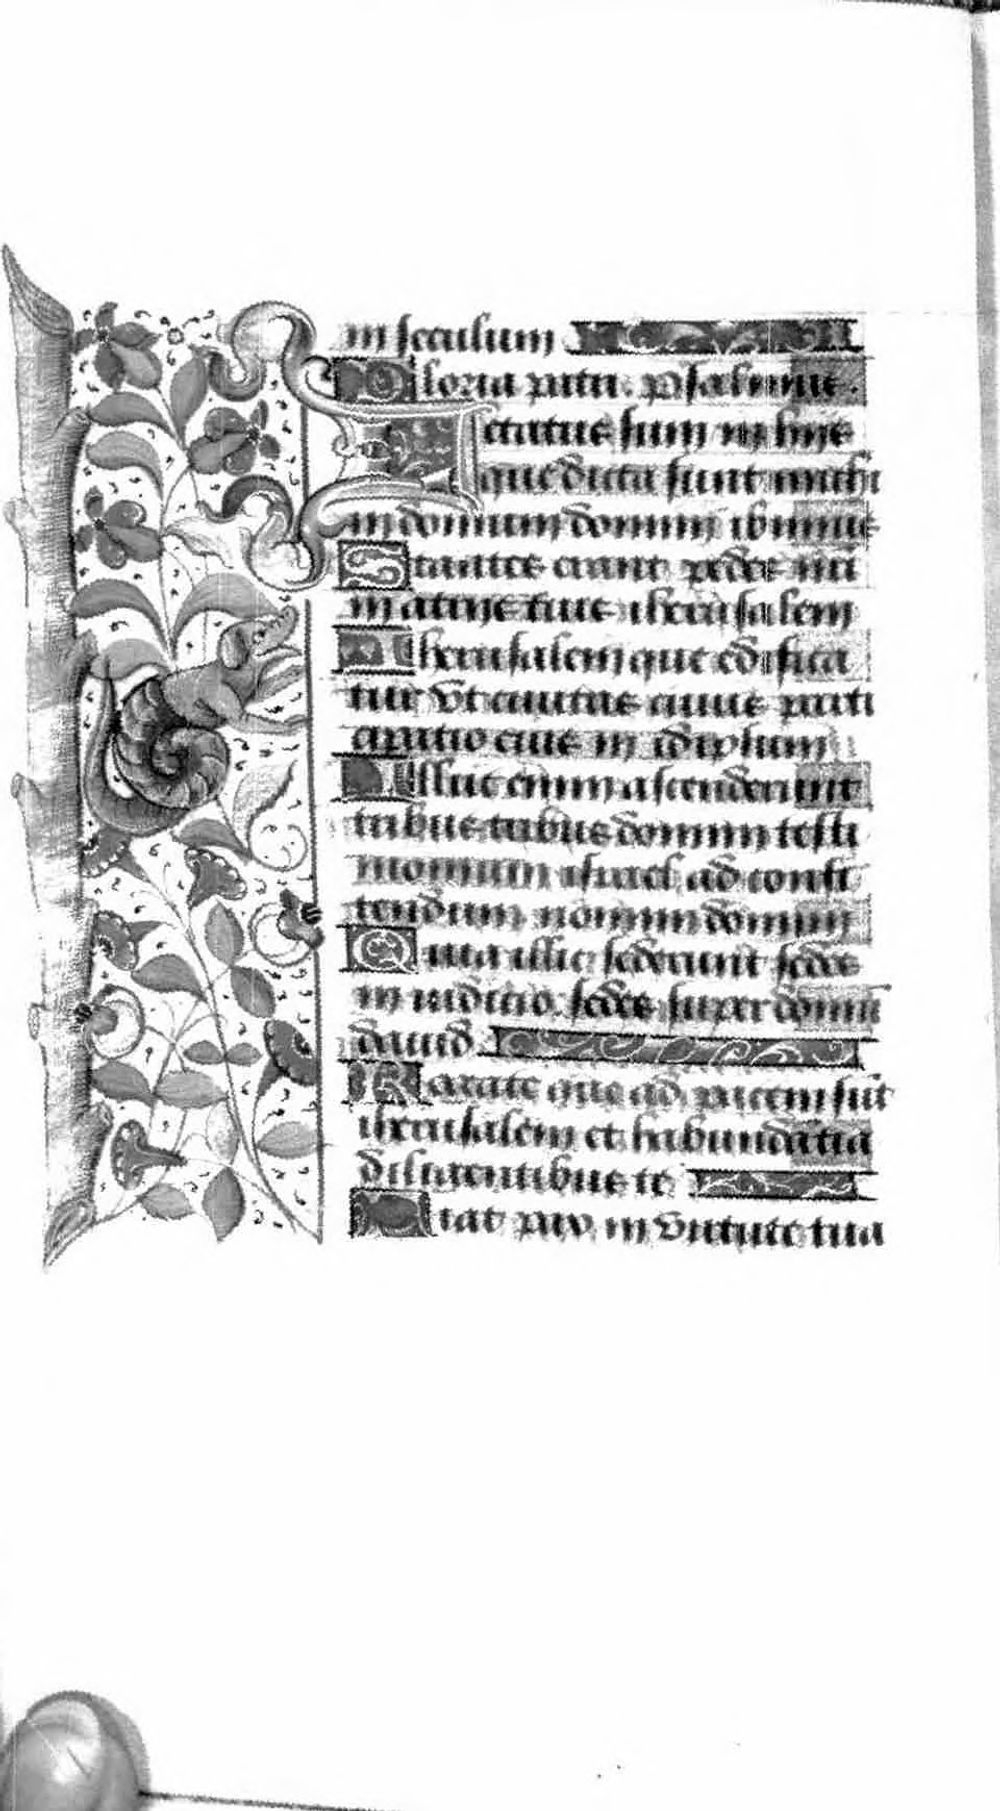 in seculum
Gloria patri. psalmus.
Letatus sum in hijs
que dicta sunt michi
in domum domini ibimus
Stantes erant pedes nri
in atrijs tuis iherusalem
Iherusalem que edifica
tur vt ciuitas cuius parti
cipatio eius in idipsum
Illuc enim ascenderunt
tribus tribus domini testi
monium israel ad confi
tendum nomini domini
Quia illic sederunt sedes
in iudicio sedes super domū
dauid
Rogate que ad pacem sūt
iherusalem et habundātia
diligentibus te
Fiat pax in virtute tua